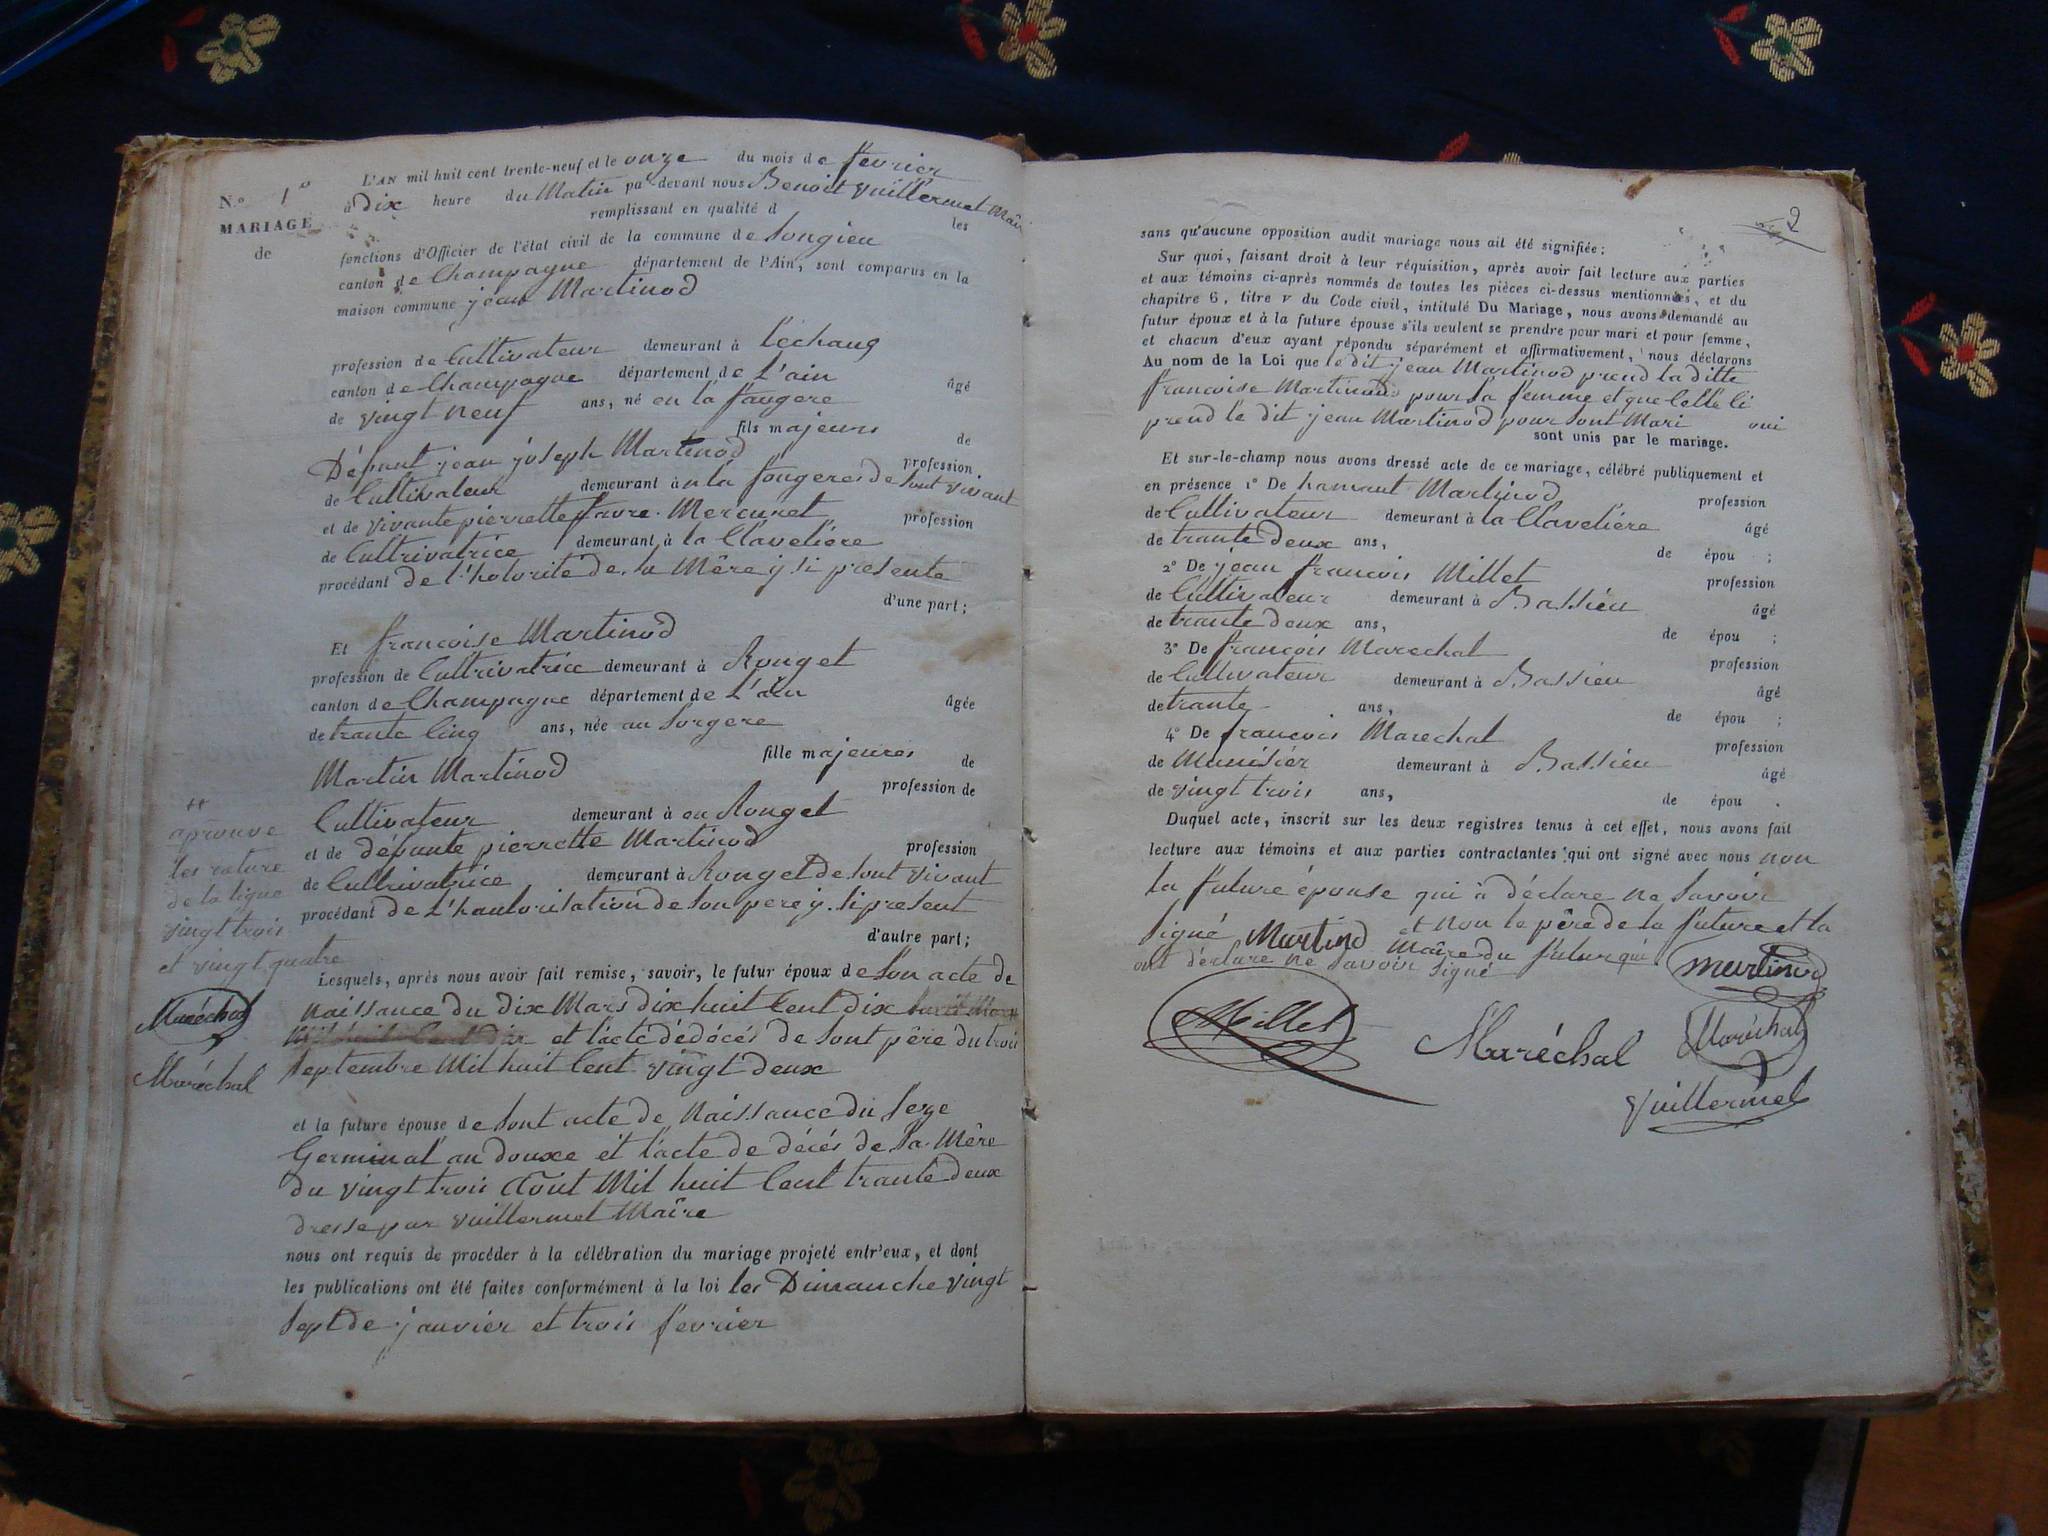 N.o 1o
MARIAGE
de
L'AN mil huit cent trente-neuf et le onze du mois de fevrier
à dix heure du Matin par devant nous Benoit Vuillermet Maire
remplissant en qualité d les
fonctions d'Officier de l'état civil de la commune de Songieu
canton de Champagne département de l'Ain, sont comparus en la
maison commune jean Martinod
profession de Cultivateur demeurant à Lechaug
canton de Champagne département de L'ain âgé
de vingt neuf ans, né en la faugere
fils majeurs de
Défunt jean joseph Martinod profession
de Cultivateur demeurant à a la fougeres de sont vivant
et de vivante pierrette favre. Mercuret profession
de Cultrivatrice demeurant à la Clavelière
procédant de l'hotorité de sa Mêre y si presente
d'une part ;
Et francoise Martinod
profession de Cultrivatrice demeurant à Rouget
canton de Champagne département de L'ain âgée
de trante Cinq ans, née au Sorgere
fille majeures de
Martin Martinod profession de
Cultivateur demeurant à au Rouget
et de défunte pierrette Martinod profession
de Cultrivatrice demeurant à Rouget de sont vivant
procédant de L'hautorisation de son pere y. si present
d'autre part ;
Lesquels, après nous avoir fait remise, savoir, le futur époux de son acte de
Naissance du dix Mars dix huit Cent dix
et l'acte dédécés de sont père du trois
septembre Mil huit Cent vingt deux
et la future épouse de sont acte de Naissance du seze
Germinal an douxe et l'acte de décés de sa Mêre
du vingt trois Aout Mil huit Cent trante deux
dresse par vuillermet Maire
nous ont requis de procéder à la célébration du mariage projeté entr'eux, et dont
les publications ont été faites conformément à la loi les Dimanche vingt
sept de janvier et trois fevrier
++
aprouve
les rature
de la ligne
vingt trois
et vingt quatre
Maréchal
Maréchal
2
sans qu'aucune opposition audit mariage nous ait été signifiée :
Sur quoi, faisant droit à leur réquisition, après avoir fait lecture aux parties
et aux témoins ci-après nommés de toutes les pièces ci-dessus mentionnées, et du
chapitre 6, titre V du Code civil, intitulé Du Mariage, nous avons demandé au
futur époux et à la future épouse s'ils veulent se prendre pour mari et pour femme,
et chacun d'eux ayant répondu séparément et affirmativement, nous déclarons
Au nom de la Loi que le dit jean Martinod prend la ditte
francoise Martinod pour sa femme et que Celle Ci
prend le dit jean Martinod pour sont Mari oui
sont unis par le mariage.
Et sur-le-champ nous avons dressé acte de ce mariage, célébré publiquement et
en présence 1° De hamant Martinod profession
de Cultivateur demeurant à la Clavelière âgé
de trante deux ans, de épou ;
2° De jean francois Millet profession
de Cultivateur demeurant à Bassieu âgé
de trante deux ans, de épou ;
3° De francois Marechal profession
de Cultivateur demeurant à Bassieu âgé
de trante ans, de épou ;
4° De francois Marechal profession
de Menisier demeurant à Bassieu âgé
de vingt trois ans, de épou .
Duquel acte, inscrit sur les deux registres tenus à cet effet, nous avons fait
lecture aux témoins et aux parties contractantes qui ont signé avec nous non
la future épouse qui à déclare ne savoir
signé Martinod et non le père de la future et la
Maire du futur qui
ont déclare ne savoir signé
Martinod
Millet
Maréchal
Maréchal
Vuillermet